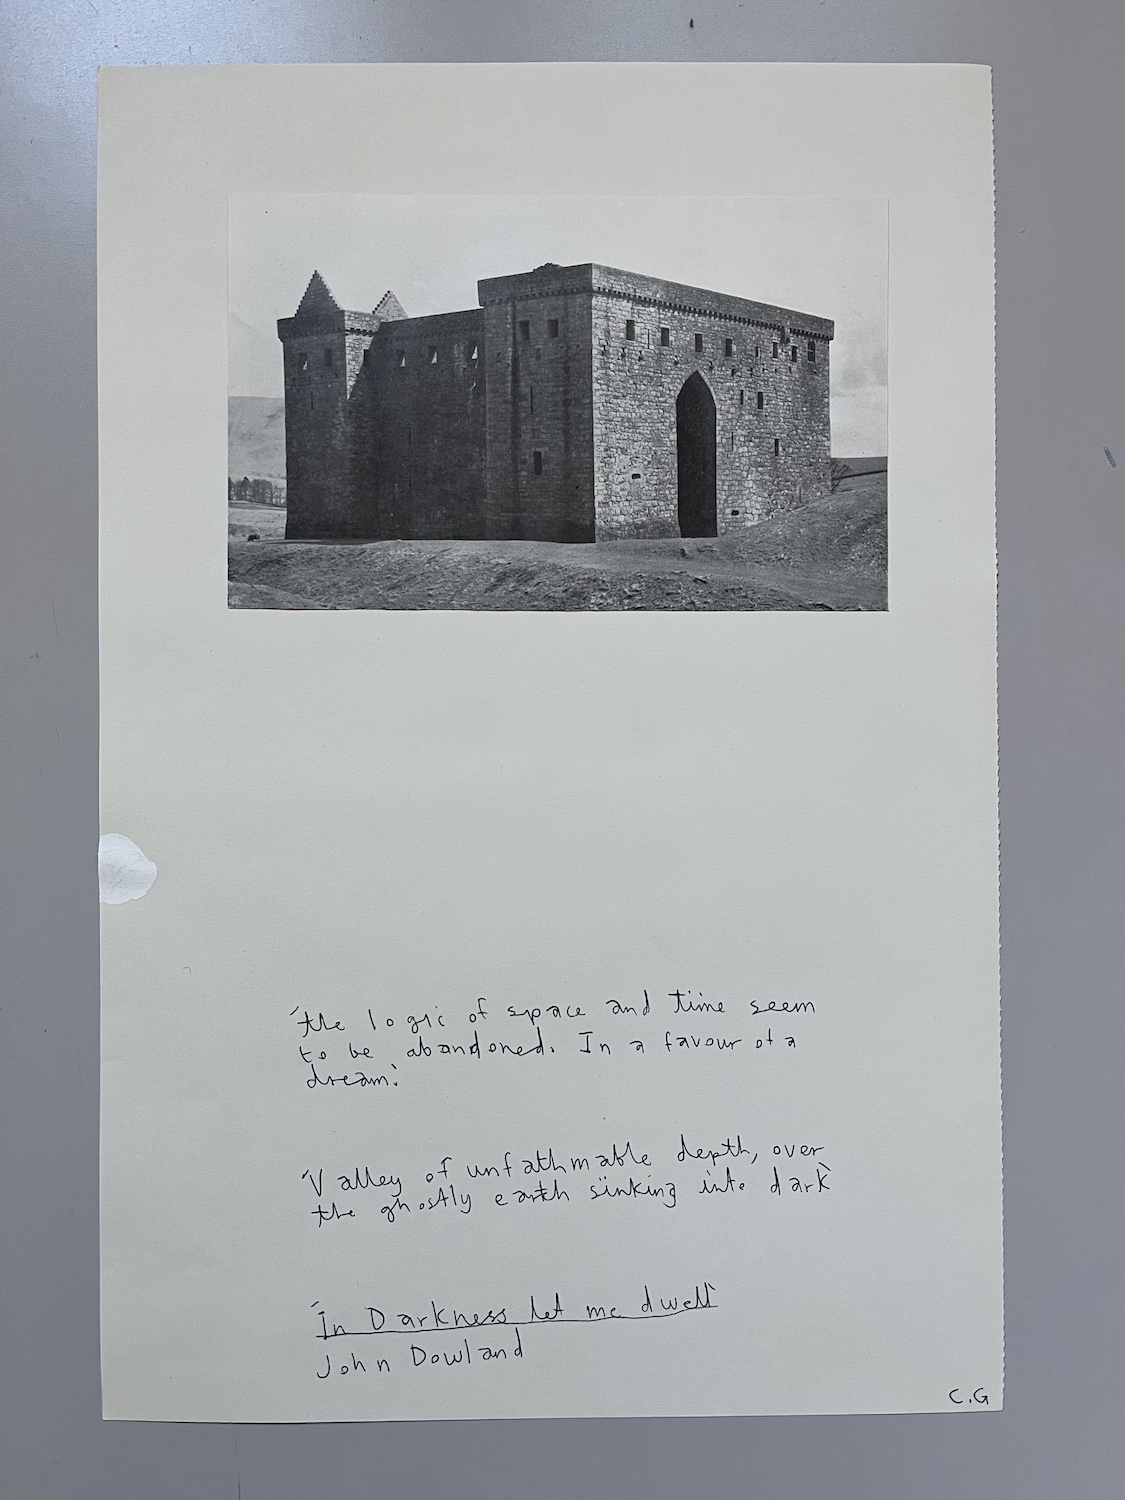 'the logic of space and time seem
to be abandoned. In a favour of a
dream.'
'Valley of unfathmable depth, over
the ghostly earth sinking into dark'
'In Darkness let me dwell'
John Dowland
C.G